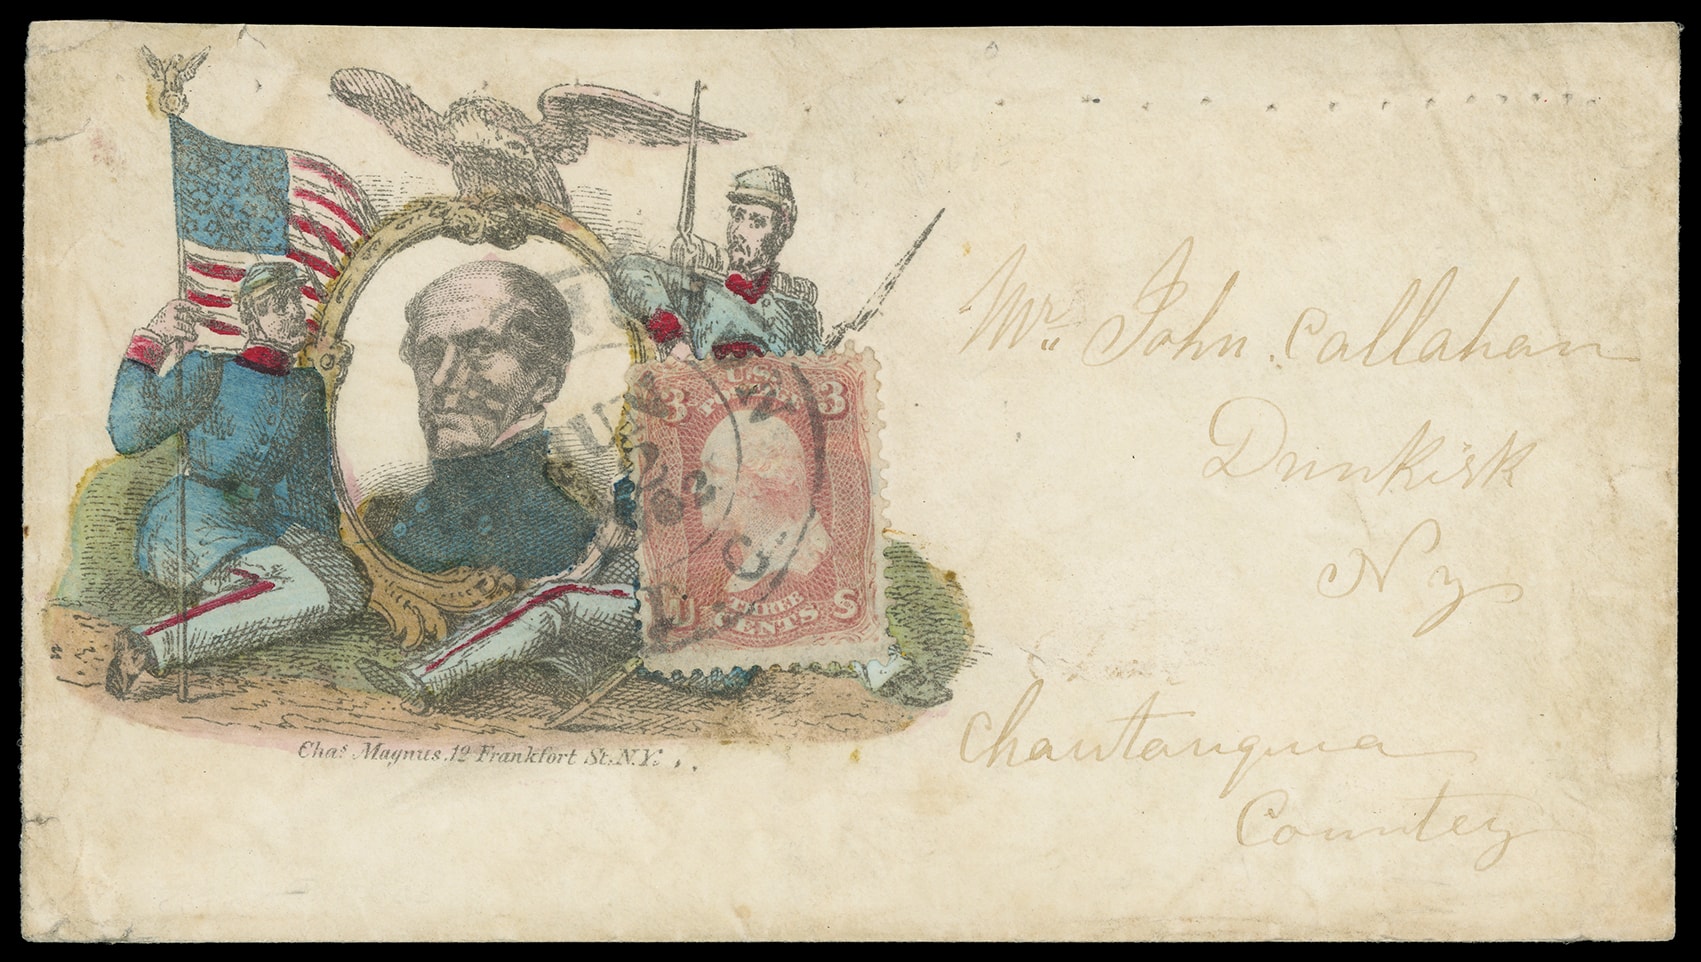 Chas. Magnus. 12 Frankfort St. N.Y.
3 U.S. POSTAGE 3
U THREE CENTS S
Mr. John. Callahan
Dunkirk
N y
Chautauqua
Countey